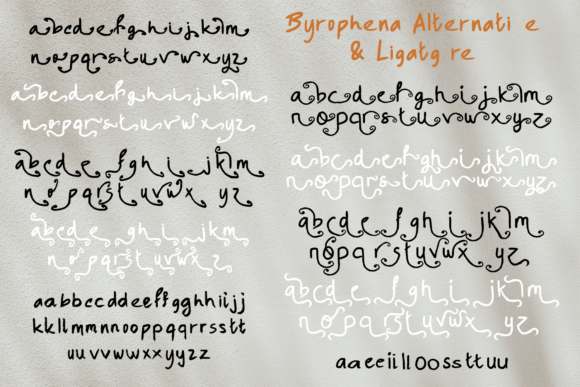 abcdefghijklm
nopqrstuvwxyz
abcdefghijklm
nopqrstuvwxyz
abcde fghi jklm
nopqrstuvwx yz
abcde ghi jkm
nopqrstuvwx yz
aabbccddeeffgghhiijj
kkllmmnnooppqqrrsstt
uuvvwwxxyyzz
Byrophena Alternati e
& Ligatg re
abcdefghijklm
nopqrstuvwxyz
abcdefghijklm
nopqrstuvwxyz
abcde fghi jklm
nopqrstuvwx yz
abcde fghi jklm
nopqrstuvwx yz
aaeeiillOOssttuu